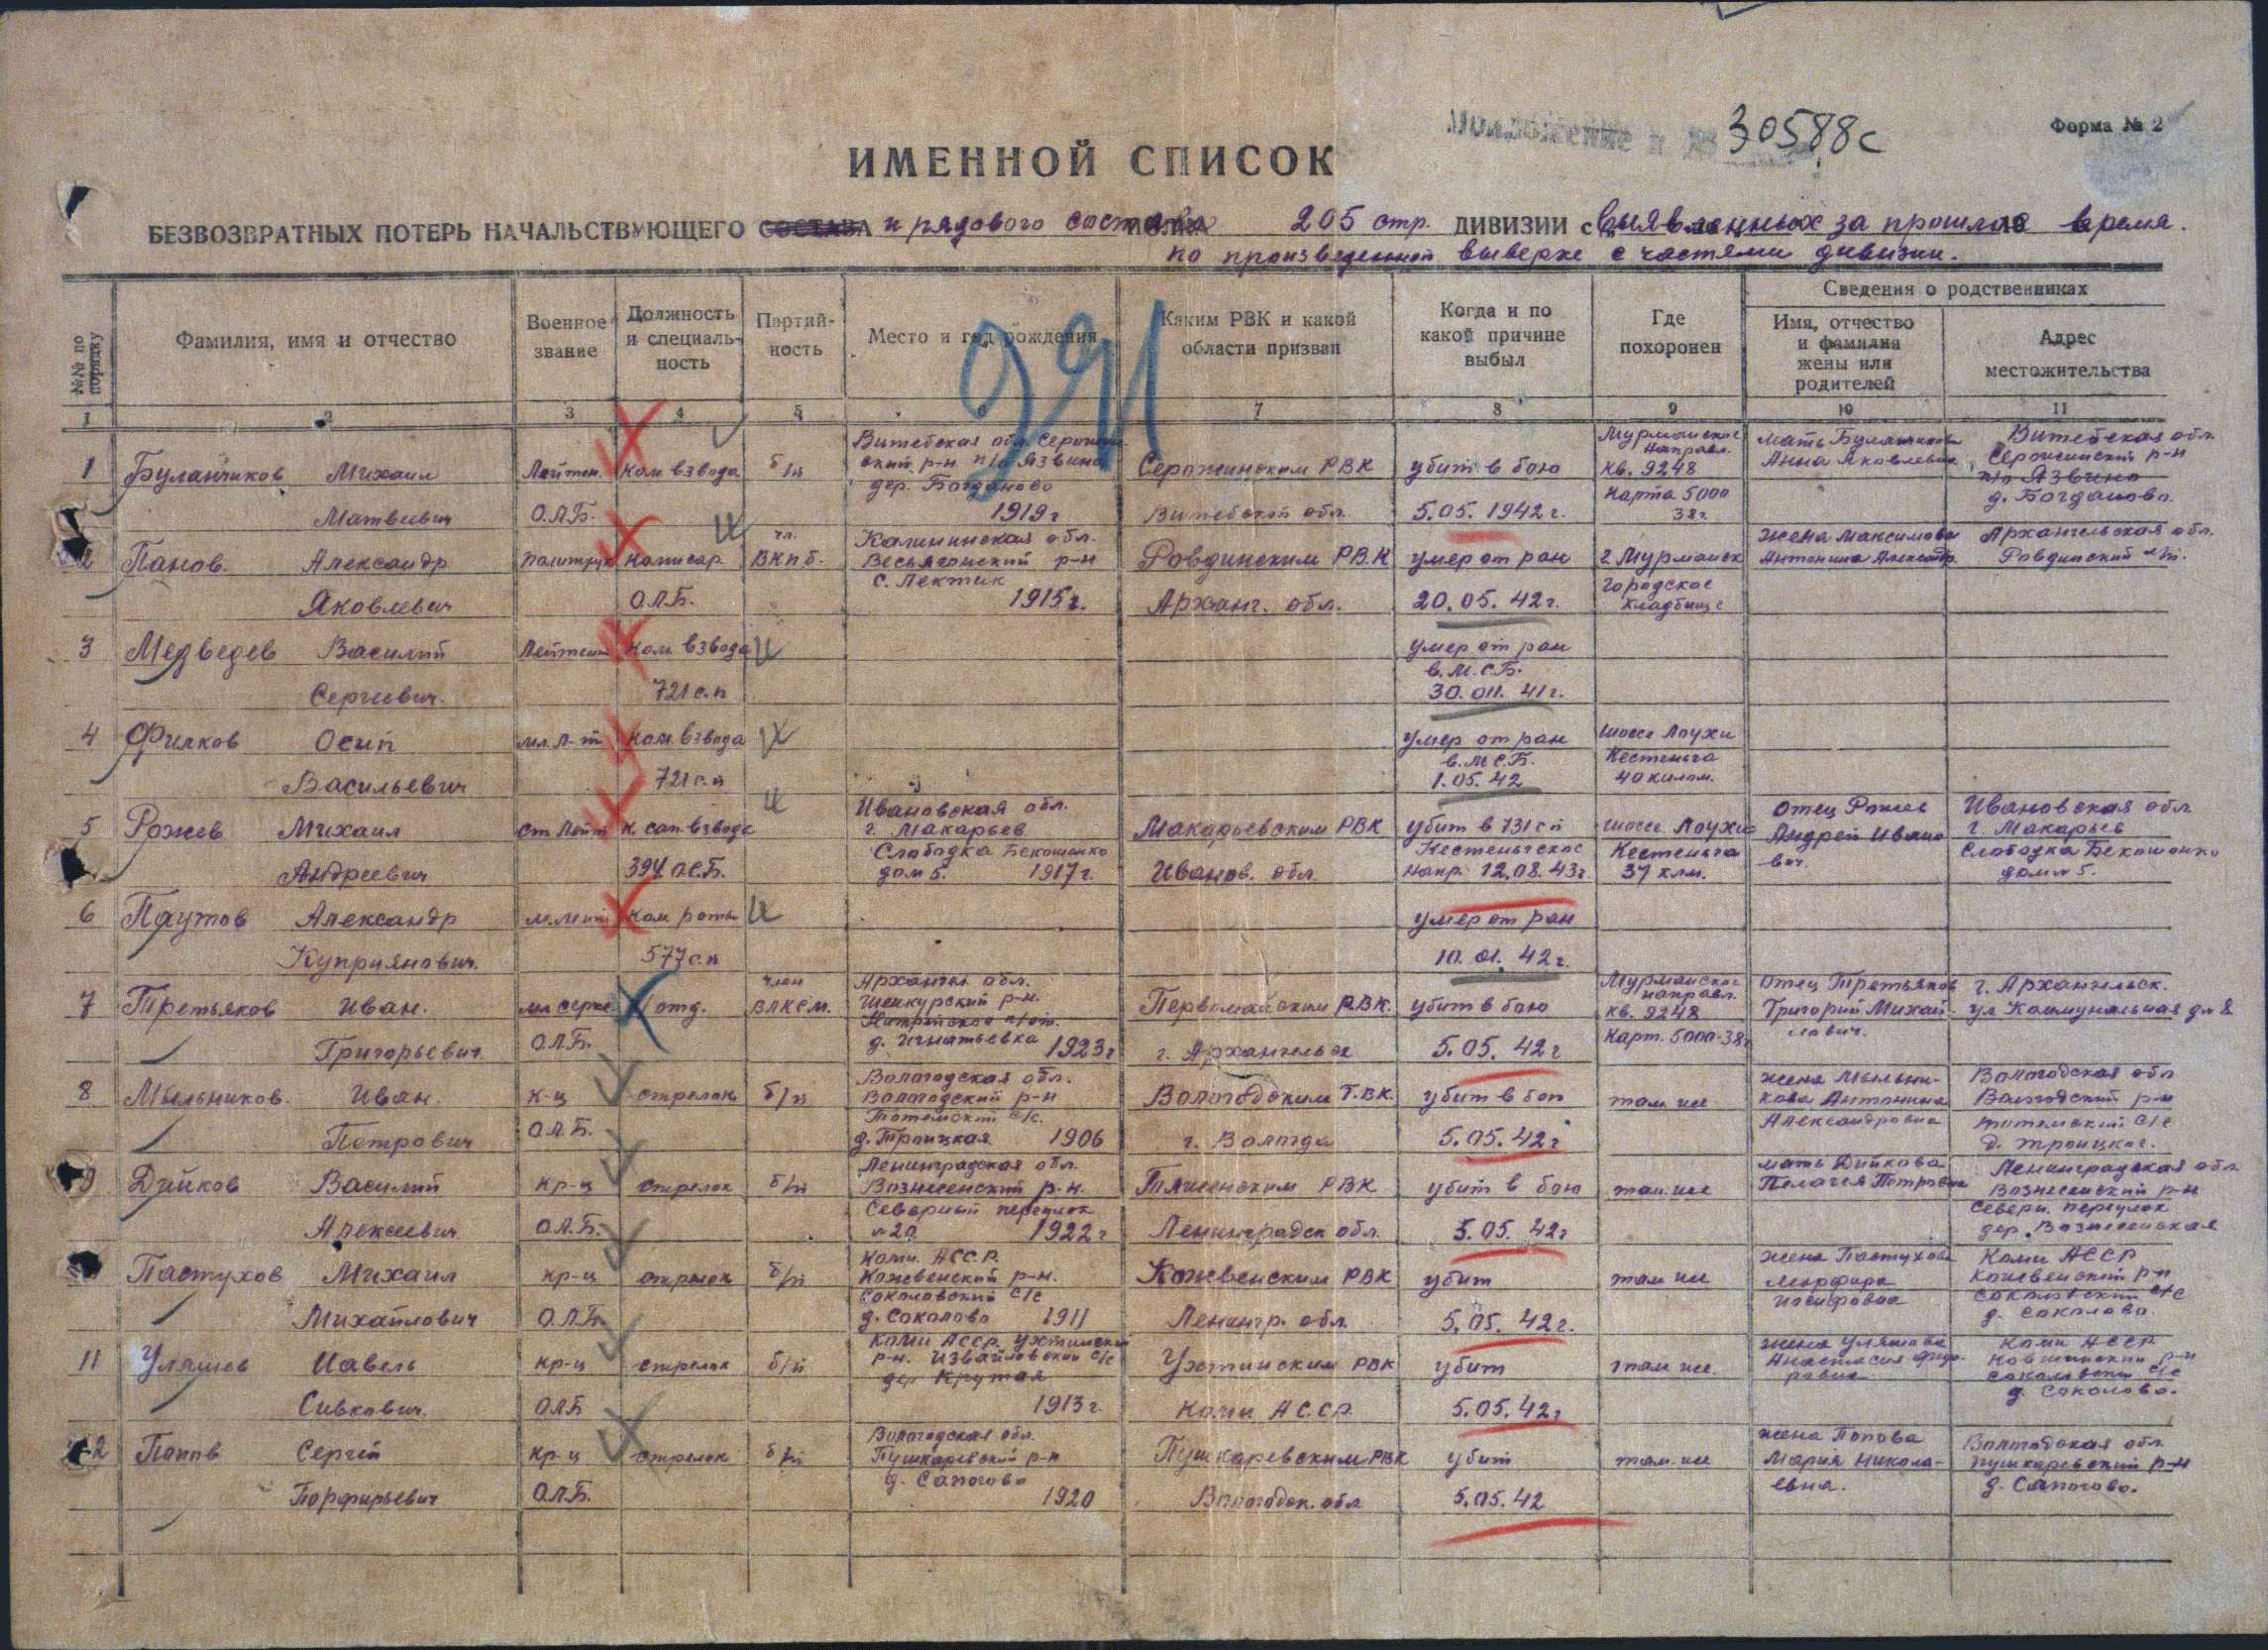 30588с
Форма № 2
ИМЕННОЙ СПИСОК
БЕЗВОЗВРАТНЫХ ПОТЕРЬ НАЧАЛЬСТВУЮЩЕГО СОСТАВА и рядового состава 205 стр. ДИВИЗИИ с выявленных за прошлое время.
по произведенной выверке с частями дивизии.
№№ по порядку
Фамилия, имя и отчество
Военное звание
Должность и специальность
Партийность
Место и год рождения
Каким РВК и какой области призван
Когда и по какой причине выбыл
Где похоронен
Сведения о родственниках
Имя, отчество и фамилия жены или родителей
Адрес местожительства
1 2 3 4 5 6 7 8 9 10 11
1 Буланчиков Михаил Матвеевич
Лейтен. О.Л.Б.
Ком взвода
б/п
Витебская обл.
р-н п/о Язвино
дер. Богданово
1919 г
РВК
Витебской обл.
убит в бою
5.05.1942 г.
Мурманское
направл.
кв. 9248
Карта 5000
38 г.
мать
Анна Яковлевна
Витебская обл.
р-н
п/о Язвино
д. Богданово.
2 Панов. Александр Яковлевич
Политрук
Комисар О.Л.Б.
чл. ВКПб.
Калининская обл.
Весьегонский р-н
с. Лектик
1915 г.
Ровдинским РВК
Арханг. обл.
умер от ран
20.05.42 г.
г. Мурманск
городское
кладбище
жена Максимова
Антонина Александр.
Архангельская обл.
Ровдинский
3 Медведев Василий Сергеевич.
Ком. взвода
721 с.п
умер от ран
в. М.С.Б.
41 г.
4 Филков Осип Васильевич
мл. л-т
Ком. взвода
721 с.п
умер от ран
в. М.С.Б.
1.05.42
шоссе Лоухи
Кестеньга
40 килом.
5 Рожев Михаил Андреевич
ст Лейт
к. сап. взвода
394 О.С.Б.
Ивановская обл.
г. Макарьев
Слободка
дом 5. 1917 г.
Макарьевским РВК
Иванов. обл.
убит в 731 сп
Кестеньгское
напр. 12.08.43 г.
шоссе Лоухи
Кестеньга
37 клм.
отец Рожев
Андрей Ивано
вич.
Ивановская обл
г. Макарьев
Слободка
дом 5.
6 Паутов Александр Куприянович.
Ком роты
577 с.п
умер от ран
10.01.42 г.
7 Третьяков Иван. Григорьевич
мл серж. О.Л.Б.
К/отд.
член ВЛКСМ.
Арханг. обл.
Шенкурский р-н.
д. Игнатьевка 1923 г
Первомайским РВК.
г. Архангельск
убит в бою
5.05.42 г
Мурманское
направл.
кв. 9248
Карт. 5000-38г
отец Третьяков
Григорий Михай-
лович.
г. Архангельск.
ул Коммунальная д № 8
8 Мыльников. Иван. Петрович
к-ц О.Л.Б.
стрелок
б/п
Вологодская обл.
Вологодский р-н
с/с.
д. Троицкая 1906
Вологодским Г.ВК.
г. Вологда
убит в бою
5.05.42 г
там же
жена Мыльни-
кова Антонина
Александровна
Вологодская обл
Вологодский р-н
с/с
д. Троицкое.
9 Дийков Василий Алексеевич
кр-ц О.Л.Б.
стрелок
б/п
Ленинградская обл.
Вознесенский р-н.
Северный переулок
№ 20 1922 г
РВК
Ленинградск обл
убит в бою
5.05.42 г
там же
мать Дийкова
Пелагея Петровна
Ленинградская обл
Вознесенский р-н
Северн. переулок
дер. Вознесенская
Пастухов Михаил Михайлович
кр-ц О.Л.Б.
стрелок
б/п
Коми. АССР.
Кожвенский р-н.
Соколовский с/с
д. Соколово 1911
Кожвенским РВК
Ленингр. обл
убит
5.05.42 г.
там же
жена Пастухова
Иосифовна
Коми АССР
Кожвенский р-н
Соколовский с/с
д. Соколово.
11 Уляшев Савель Сивкович.
кр-ц О.Л.Б
стрелок
б/п
Коми АССР. Ухтинский
р-н. Извайловский с/с
дер Крутая
1913 г.
Ухтинским РВК
Коми АССР.
убит
5.05.42 г
там же.
жена Уляшева
Анастасия Федо-
ровна
Коми АССР
р-н
Соколовский с/с
д. Соколово.
12 Попов Сергей Порфирьевич
кр-ц О.Л.Б.
стрелок
б/п
Вологодская обл.
Пушкаревский р-н
д. Сапогово
1920
Пушкаревским РВК
Вологодск. обл
убит
5.05.42
там же
жена Попова
Мария Никола-
евна.
Вологодская обл
Пушкаревский р-н
д. Сапогово.